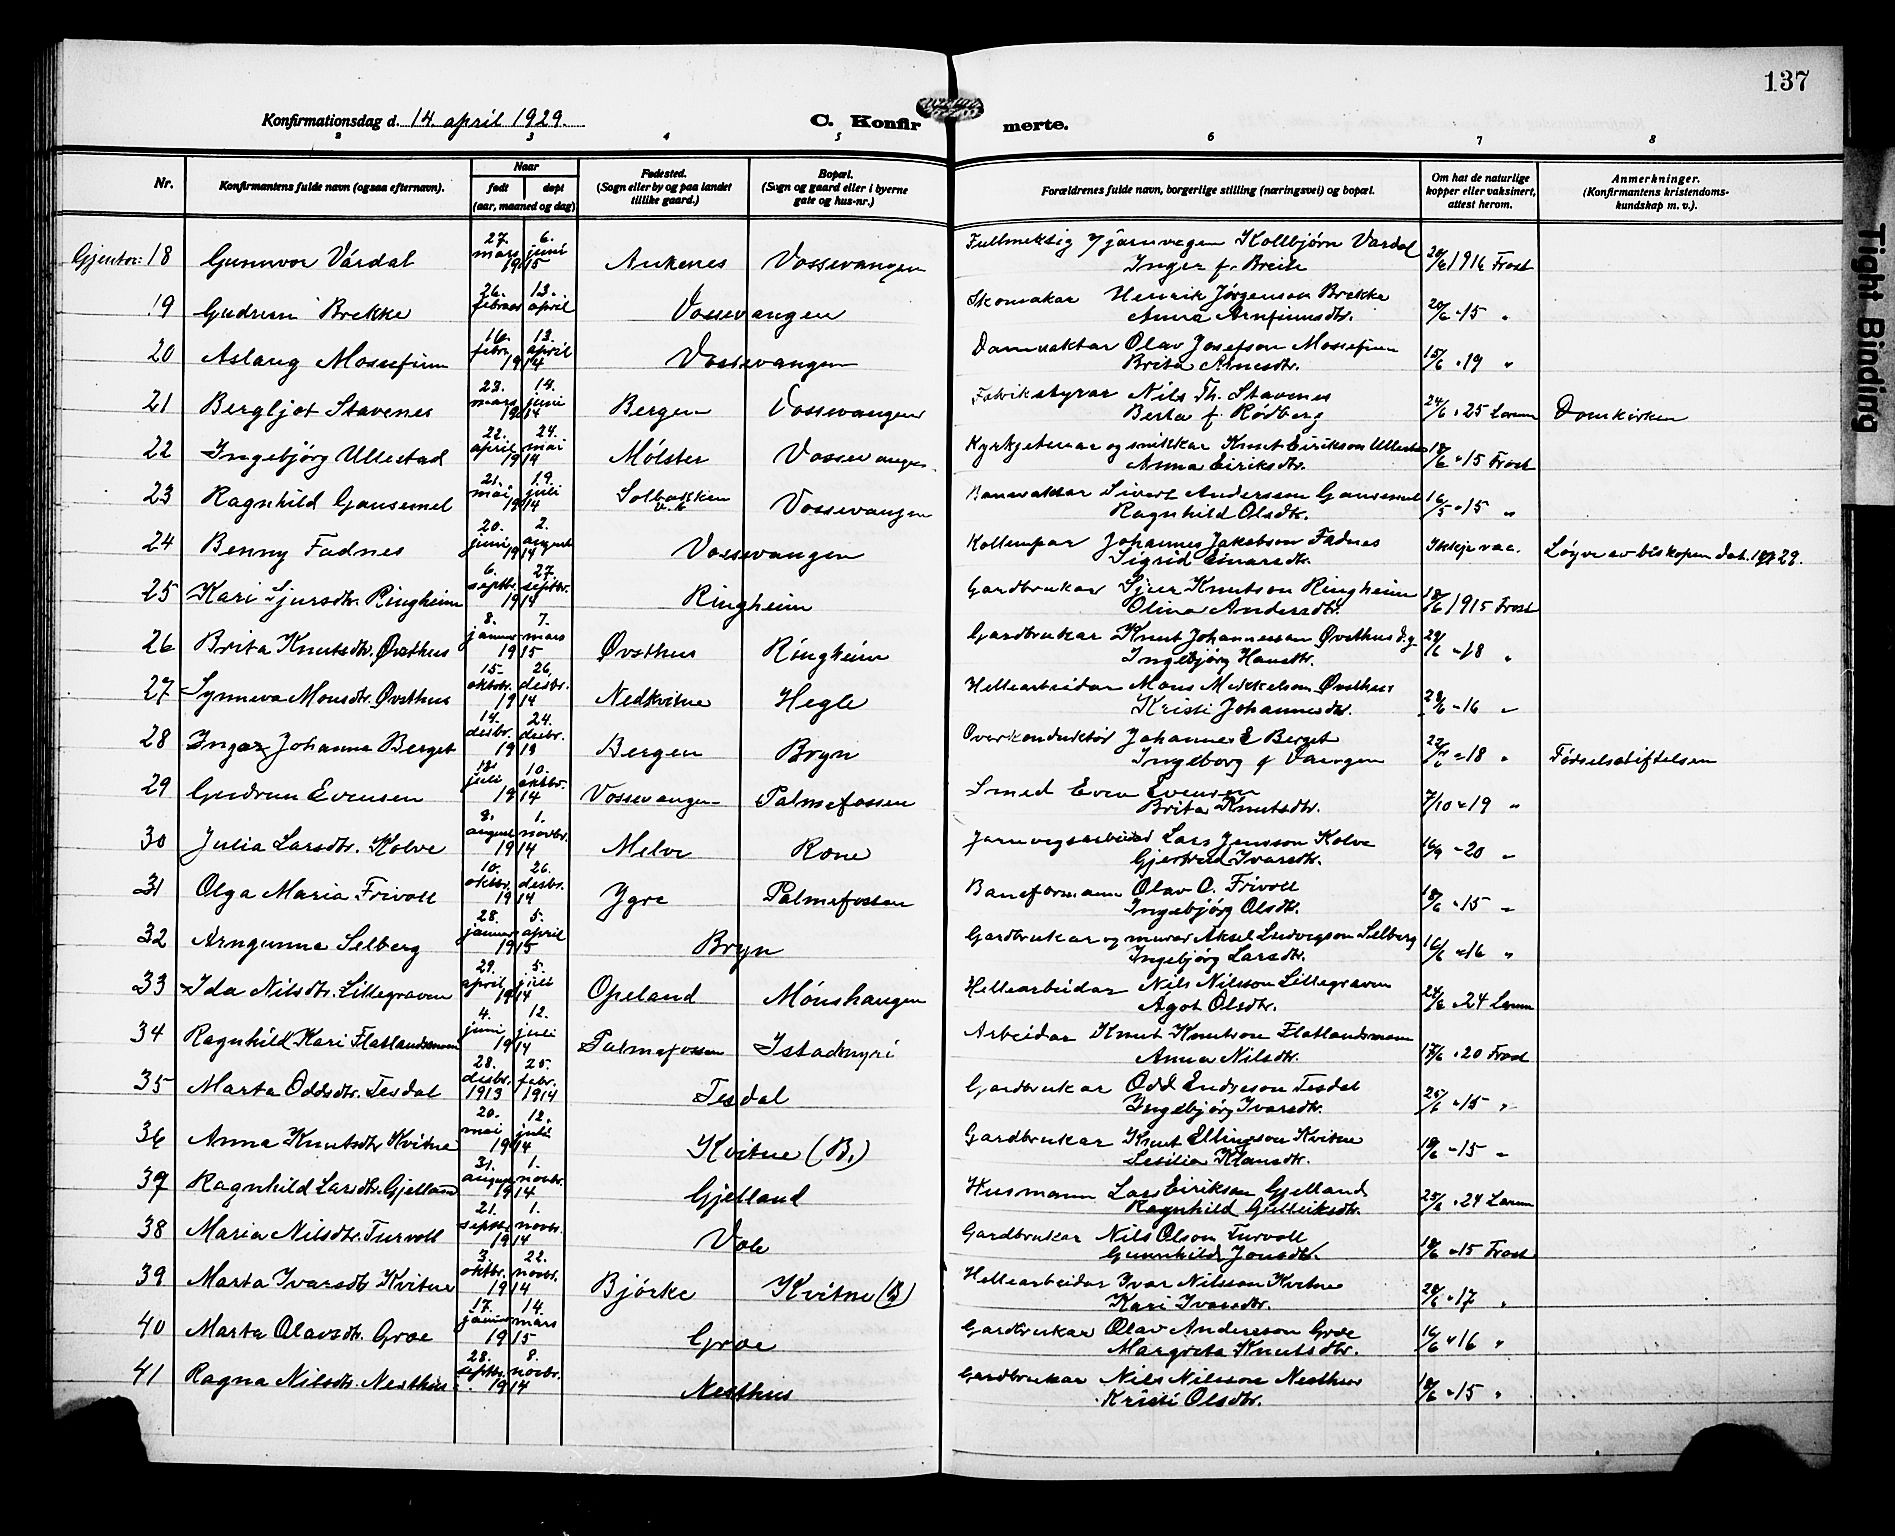 137
Konfirmationsdag d. 14. april 1929.
C. Konfirmerte.
2 3 4 5 6 7 8
Nr.
Konfirmantens fulde navn (ogsaa efternavn).
Naar
født døpt
(aar, maaned og dag)
Fødested.
(Sogn eller by og paa landet
tillike gaard.)
Bopæl.
(Sogn og gaard eller i byerne
gate og hus-nr.)
Forældrenes fulde navn, borgerlige stilling (næringsvei) og bopæl.
Om hat de naturlige
kopper eller vaksinert,
attest herom.
Anmerkninger.
(Konfirmantens kristendoms-
kundskap m. v.).
Tight Binding
Gjentor: 18 Gunnvor Vårdal 27. mars 6. juni 1915 Ankenes Vossevangen Fullmektig v/jarnvegen Kollbjørn Vårdal
Inger f. Breite 1916 Frost
19 Gudrun Brekke 26. februar 13. april Vossevangen Skomakar Henrik Jørgenson Brekke
Anna Arnfinnsdtr. 20/6 " 15 "
20 Aslaug Mossefinn 16. febr. 13. april 1914 Vossevangen Damvaktar Olav Josefson Mossefinn
Brita Arnesdtr. 15/6 " 19 "
21 Bergljot Stavenes 23. mars 14. juni 1914 Bergen Vossevangen Fabrikstyrar Nils Th. Stavenes
Berta f. Rødberg 24/6 " 25 Lorum Domkirken
22 Ingebjørg Ullestad 22. april 24. mai 1914 Mølster Vossevangen Kyrkjetenar og snikkar Knut Eirikson Ullestad
Anna Eiriksdtr. 18/6 " 15 Frost
23 Ragnhild Gausemel 21. mai 19. juli 1914 Solbakken Vossevangen Banevaktar Sivert Anderssen Gausemel
Ragnhild Olsdtr. 16/5 " 15 "
24 Benny Fadnes 20. juni 2. august 1914 Vossevangen Johannes Jakobson Fadnes
Sigrid Einarsdtr. Ikkje vac. Løyve av biskopen dat. 29.
25 Kari Sjursdtr. Ringheim 6. septbr. 27. septbr. 1914 Ringheim Gardbrukar Sjur Knutson Ringheim
Olina Andersdtr. 18/6 1915 Frost
26 Brita Knutsdtr. Øvsthus 8. januar 7. mars 1915 Øvsthus Ringheim Gardbrukar Knut Johannesson Øvsthus d.y.
Ingebjørg Hansdtr. " 18 "
27 Synneva Monsdtr. Øvsthus 15. oktbr. 26. desbr. 1914 Nedkvitne Hegle Hellearbeidar Mons Mikkelson Øvsthus
Kristi Johannesdtr. " 16 "
28 Ingar Johanna Berget 14. desbr. 24. desbr. 1913 Bergen Bryn Overkonduktør Johannes E Berget
Ingeborg f Vangen " 18 " Fødselsstiftelsen
29 Gudrun Evensen juli 10. oktbr. 1914 Vossevangen Palmefossen Smed Even Evensen
Brita Knutsdtr. 7/10 " 19 "
30 Julia Larsdtr. Kolve august 1. novbr. 1914 Melve Rone Jarnvegsarbeidar Lars Jensson Kolve
Gjertrud Ivarsdtr. 16/9 " 20 "
31 Olga Maria Frivoll 10. oktbr. 26. desbr. 1914 Ygre Palmefossen Baneformann Olav O. Frivoll
Ingebjørg Olsdtr. 18/6 " 15 "
32 Arngunna Selberg 28. januar 5. april 1915 Bryn Gardbrukar og murar Aksel Ludvigson Selberg
Ingebjørg Larsdtr. 16/6 " 16 "
33 Ida Nilsdtr. Lillegraven 29. april 5. juli 1914 Opeland Mønshaugen Hellearbeidar Nils Nilsson Lillegraven
Agot Olsdtr. 24/6 " 24 Lorum
34 Ragnhild Kari Flatlandsmoen 4. juni 12. juli 1914 Palmefossen Istadmyri Arbeidar Knut Knutson Flatlandsmoen
Anna Nilsdtr. 17/6 " 20 Frost
35 Marta Oddsdtr. Tesdal 28. desbr. 1913 25. febr. 1914 Tesdal Gardbrukar Odd Endreson Tesdal
Ingebjørg Ivarsdtr. 25/6 " 15 "
36 Anna Knutsdtr Kvitne 20. mai 12. juli 1914 Kvitne (B.) Gardbrukar Knut Ellingson Kvitne
Sesilia Klausdtr. 18/6 " 15 "
37 Ragnhild Larsdtr. Gjelland 31. august 1. novbr. 1914 Gjelland Husmann Lars Eirikson Gjelland
Ragnhild Gulleiksdtr. 25/6 " 24 Lorum
38 Maria Nilsdtr. Turvoll 21. septbr. 1. novbr. 1914 Vole Gardbrukar Nils Olson Turvoll
Gunnhild Jonsdtr. 18/6 " 15 Frost
39 Marta Ivarsdtr Kvitne 3. oktbr. 22. novbr. 1914 Bjørke Kvitne (B) Hellearbeidar Ivar Nilsson Kvitne
Kari Ivarsdtr. " 17 "
40 Marta Olavsdtr. Groe 17. januar 14. mars 1915 Groe Gardbrukar Olav Andersson Groe
Margreta Knutsdtr. 16/6 " 16 "
41 Ragna Nilsdtr. Nesthus 28. septbr. 8. novbr. 1914 Nesthus Gardbrukar Nils Nilsson Nesthus
Kristi Olsdtr. 18/6 " 15 "